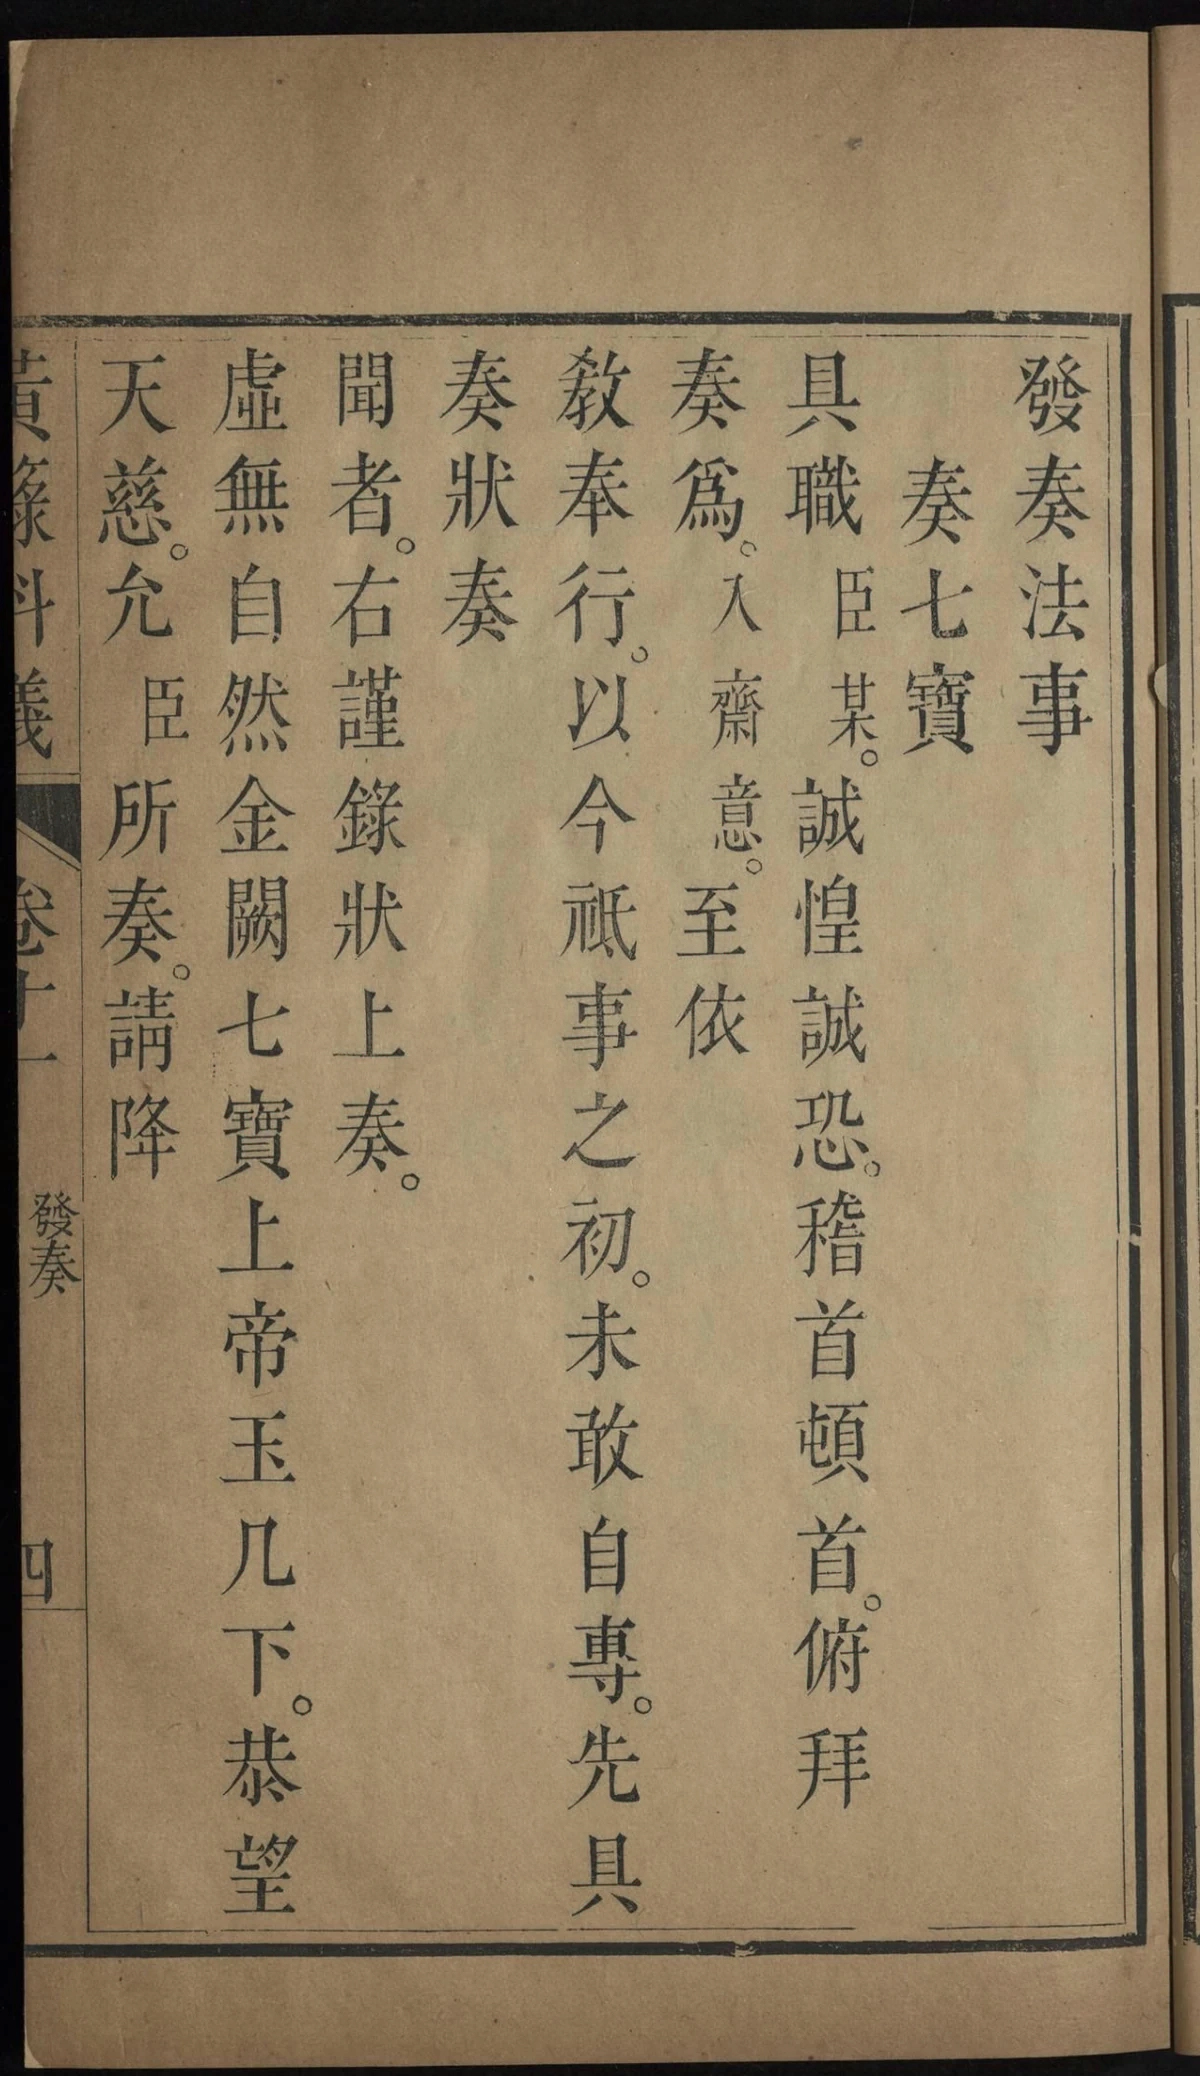 發奏法事
奏七寶
具職臣某。誠惶誠恐。稽首頓首。俯拜
奏爲。入齋意。至依
敎奉行。以今祗事之初。未敢自專。先具
奏狀奏
聞者。右謹錄狀上奏。
虛無自然金闕七寶上帝玉几下。恭望
天慈。允臣所奏。請降
黃籙科儀 卷十一 發奏 四